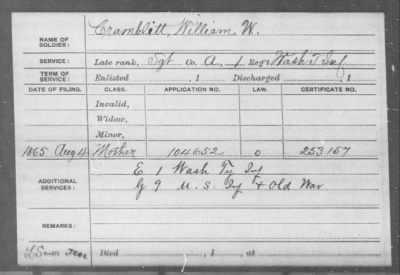 NAME OF SOLDIER: Cramblitt, William W.
SERVICE: Late rank, Sgt Co. A, 1 Reg't Wash T Inf
TERM OF SERVICE: Enlisted , 1 Discharged , 1
DATE OF FILING. CLASS. APPLICATION NO. LAW. CERTIFICATE NO.
Invalid,
Widow,
Minor,
1865 Aug 4 Mother 104652 0 253157
ADDITIONAL SERVICES: E 1 Wash Ty Inf
G 9 U.S. Inf & Old War
REMARKS:
Died , 1 , at